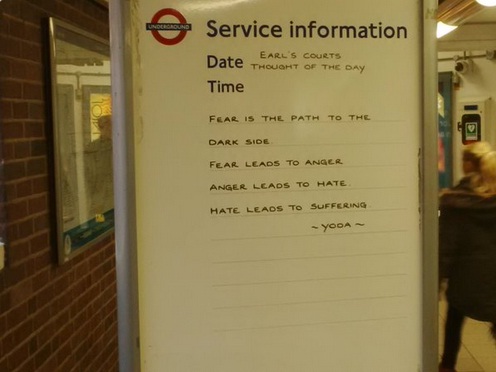 UNDERGROUND
Service information
Date EARL'S COURTS
THOUGHT OF THE DAY
Time
FEAR IS THE PATH TO THE
DARK SIDE.
FEAR LEADS TO ANGER
ANGER LEADS TO HATE.
HATE LEADS TO SUFFERING.
~YODA~